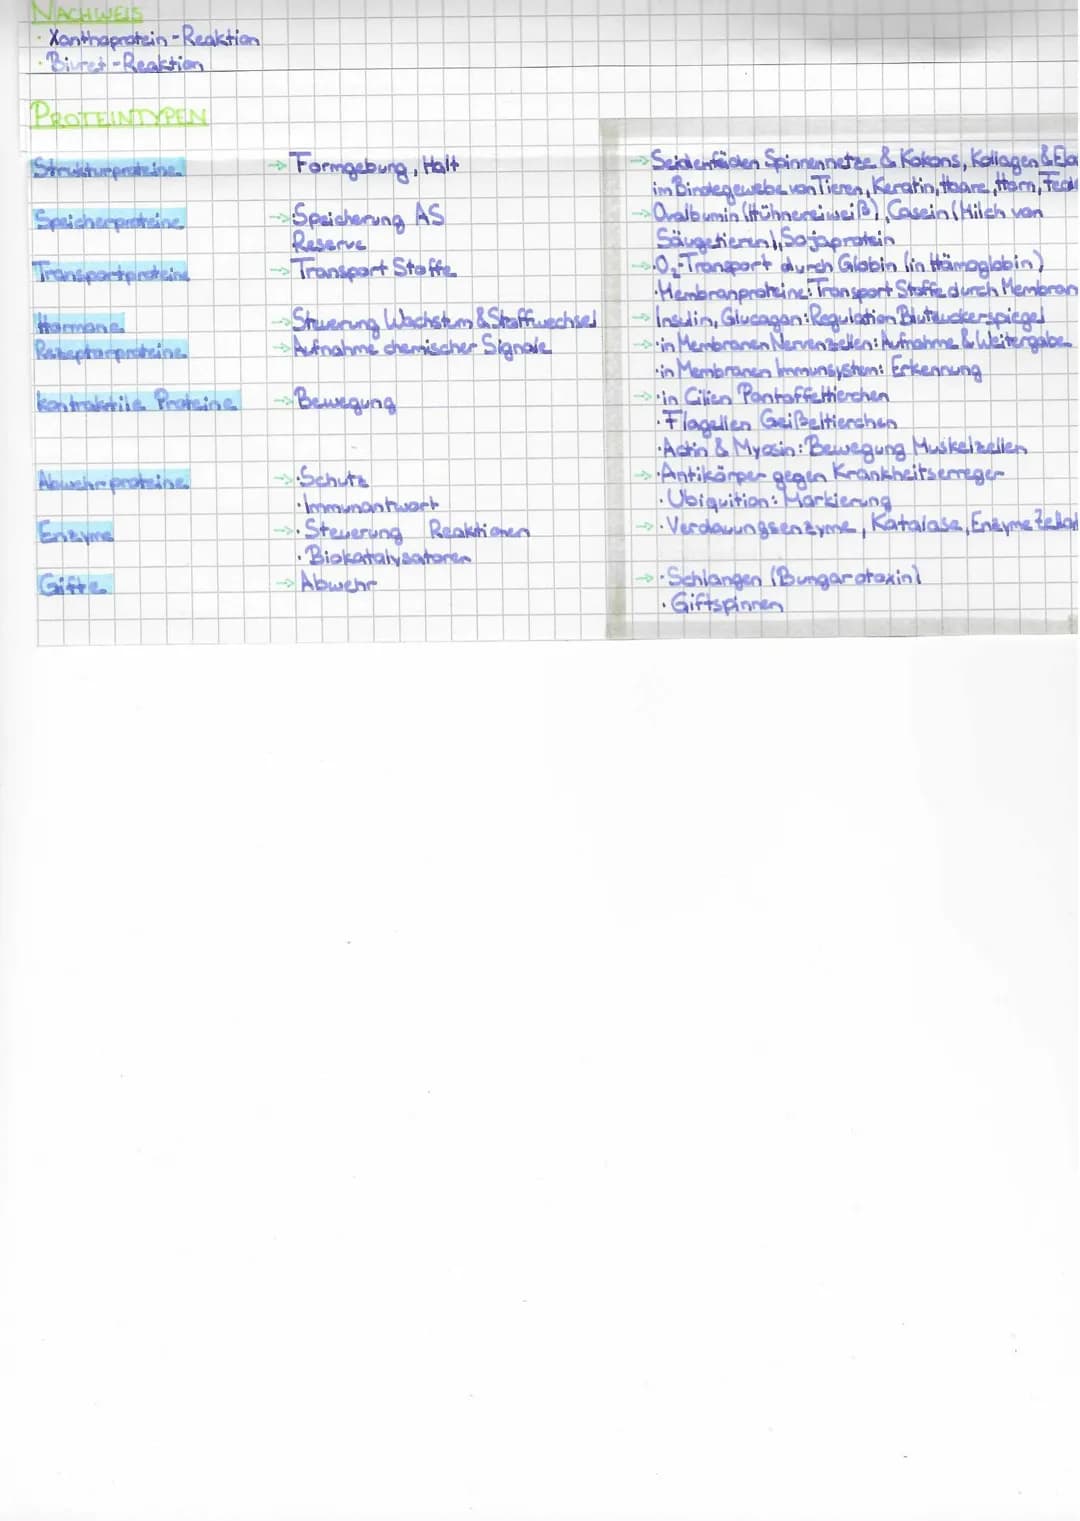 NACHWEIS
· Xanthoprotein-Reaktion
· Biuret-Reaktion
PROTEINTYPEN
Strukturproteine → Formgebung, Halt → Seidenfäden Spinnennetze & Kokons, Kollagen & Ela
im Bindegewebe von Tieren, Keratin, Haare, Horn, Fed
Speicherproteine → Speicherung AS → Ovalbumin (Hühnereiweiß), Casein (Milch von
Reserve Säugetieren), Sojaprotein
Transportproteine → Transport Stoffe → · O₂-Transport durch Globin (in Hämoglobin)
· Membranproteine: Transport Stoffe durch Membran
Hormone → Steuerung Wachstum & Stoffwechsel → Insulin, Glucagon: Regulation Blutzuckerspiegel
Rezeptorproteine → Aufnahme chemischer Signale → · in Membranen Nervenzellen: Aufnahme & Weitergabe
· in Membranen Immunsystem: Erkennung
kontraktile Proteine → Bewegung → · in Cilien Pantoffeltierchen
· Flagellen Geißeltierchen
· Actin & Myosin: Bewegung Muskelzellen
Abwehrproteine → · Schutz → · Antikörper gegen Krankheitserreger
· Immunantwort · Ubiquition: Markierung
Enzyme → · Steuerung Reaktionen → · Verdauungsenzyme, Katalase, Enzyme
· Biokatalysatoren
Gifte → Abwehr → · Schlangen (Bungarotoxin)
· Giftspinnen